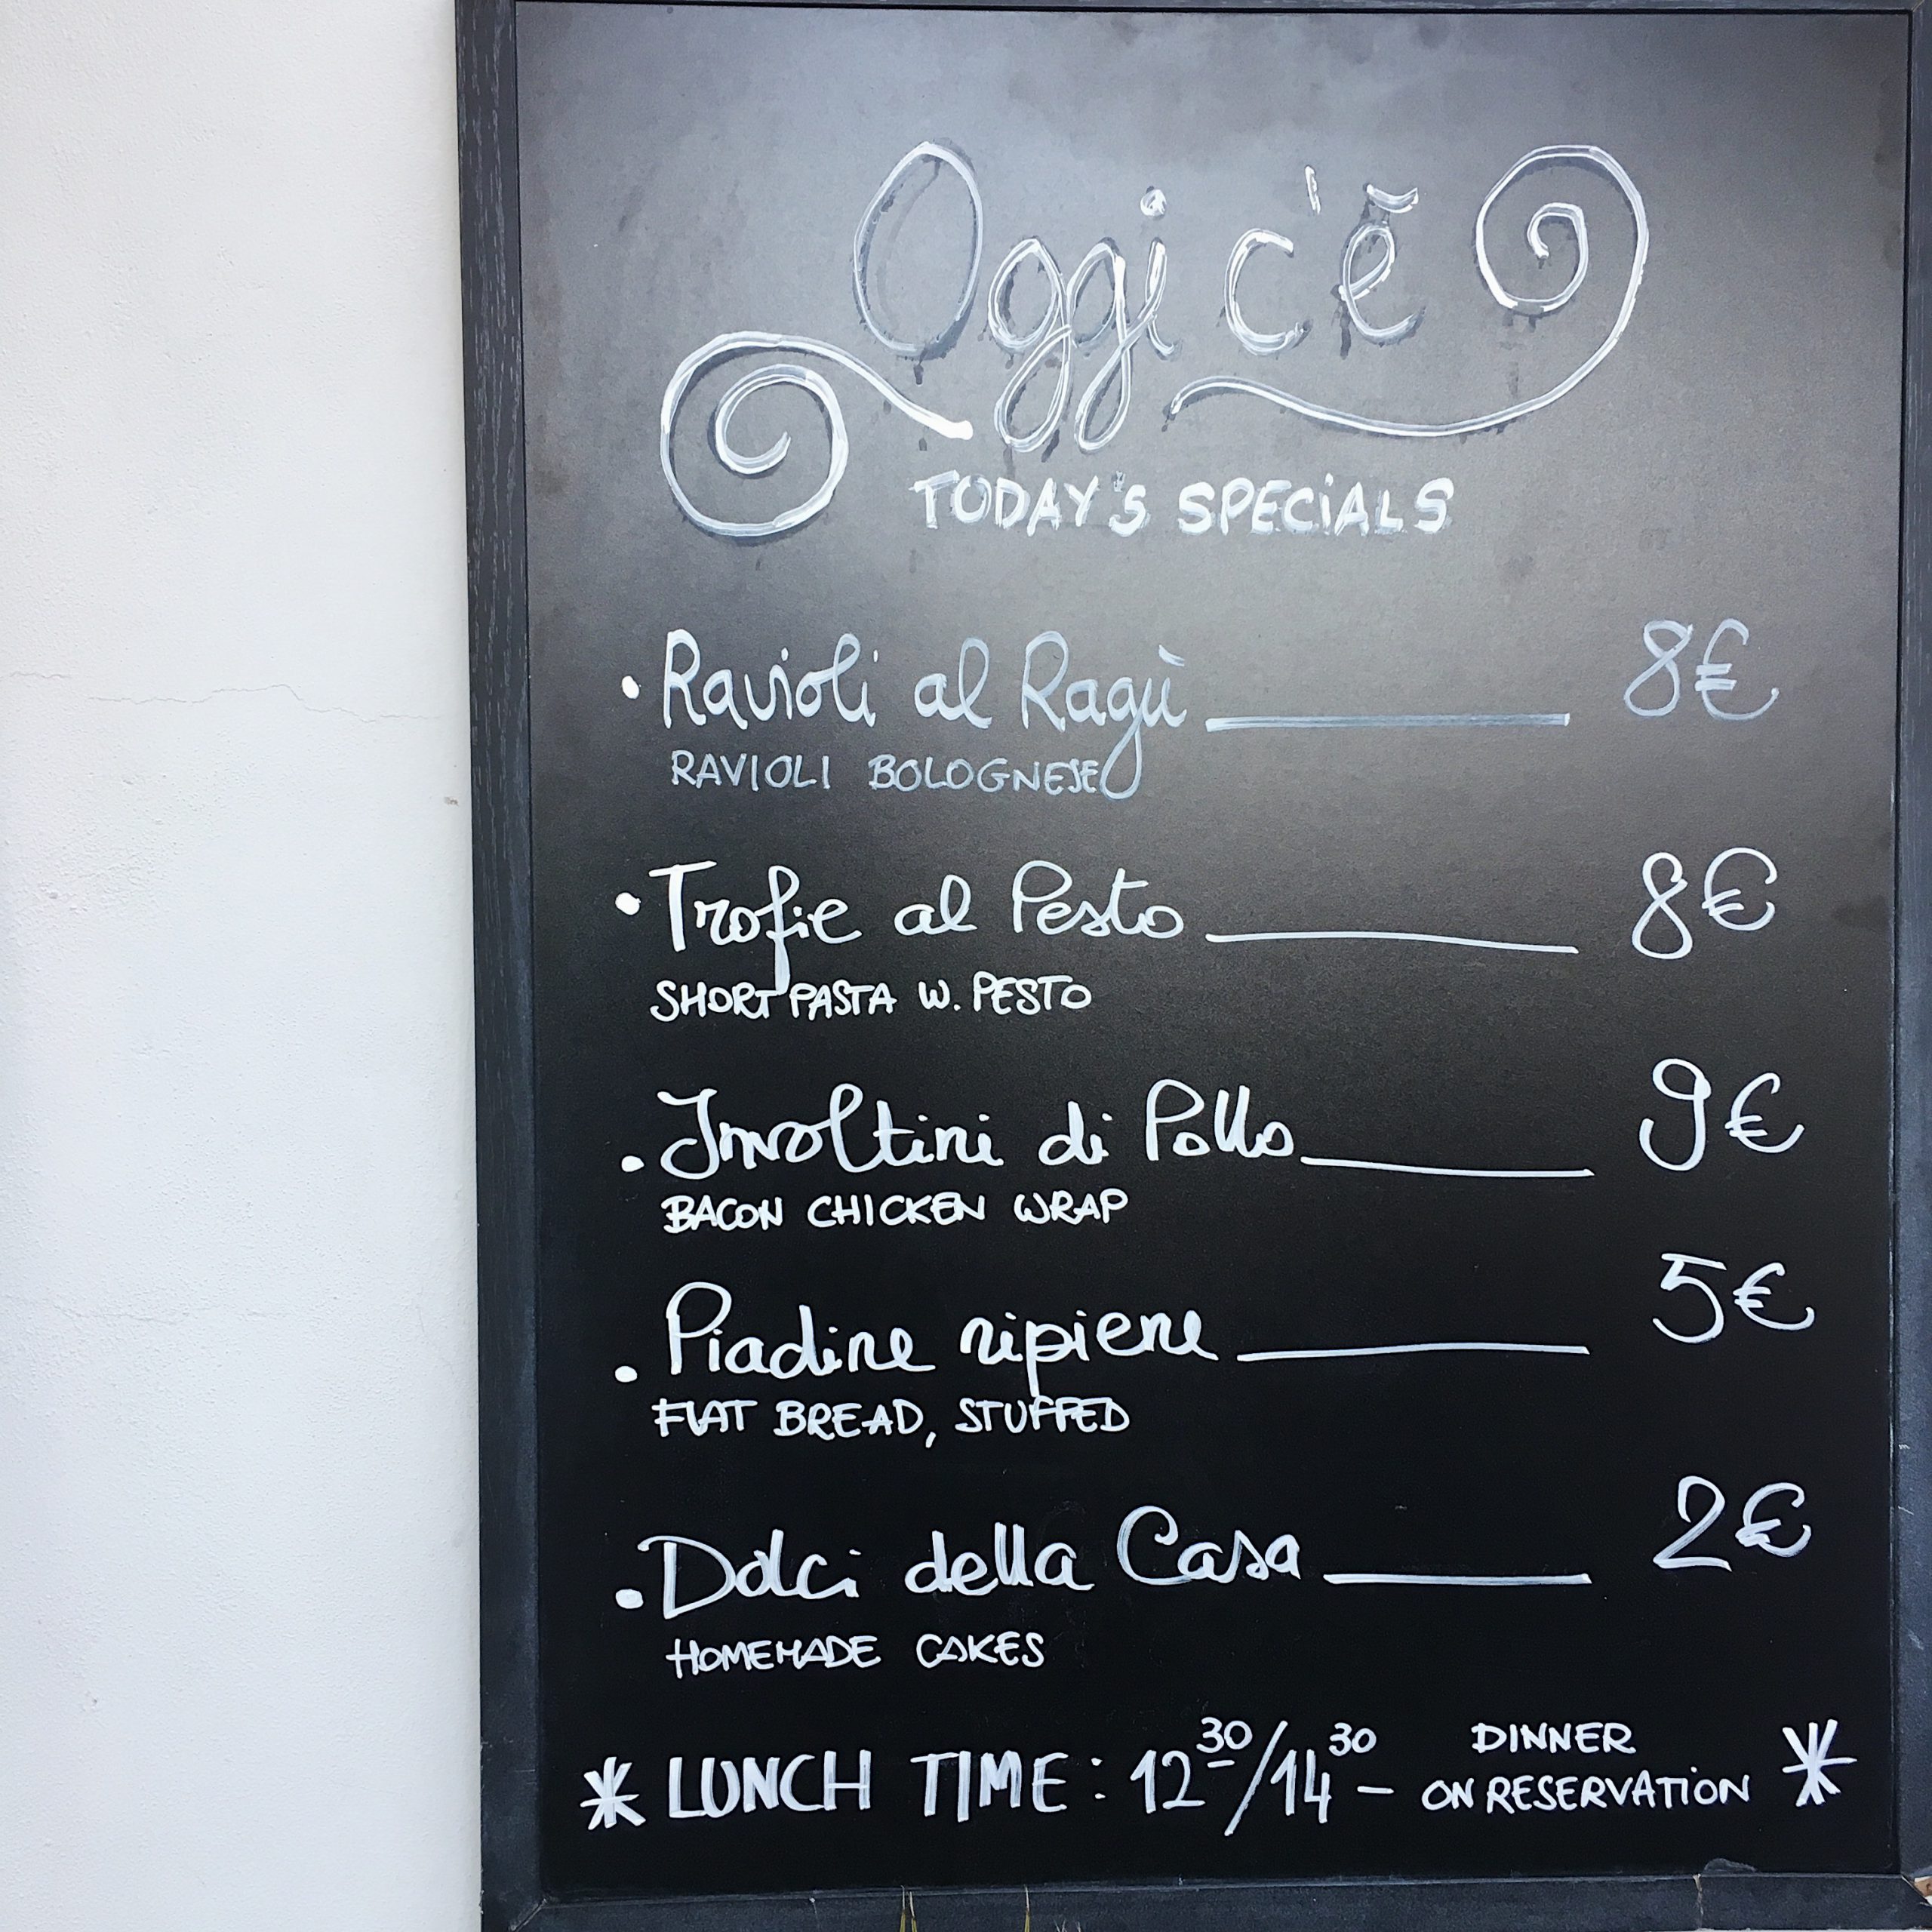 Oggi c'è
TODAY'S SPECiALS
• Ravioli al Ragù ____ 8€
RAVIOLI BOLOGNESE
• Trofie al Pesto ____ 8€
SHORT PASTA W. PESTO
• Involtini di Pollo ____ 9€
BACON CHICKEN WRAP
• Piadine ripiene ____ 5€
FLAT BREAD, STUFFED
• Dolci della Casa ____ 2€
HOMEMADE CAKES
* LUNCH TIME: 12³⁰/14³⁰ – DINNER ON RESERVATiON *